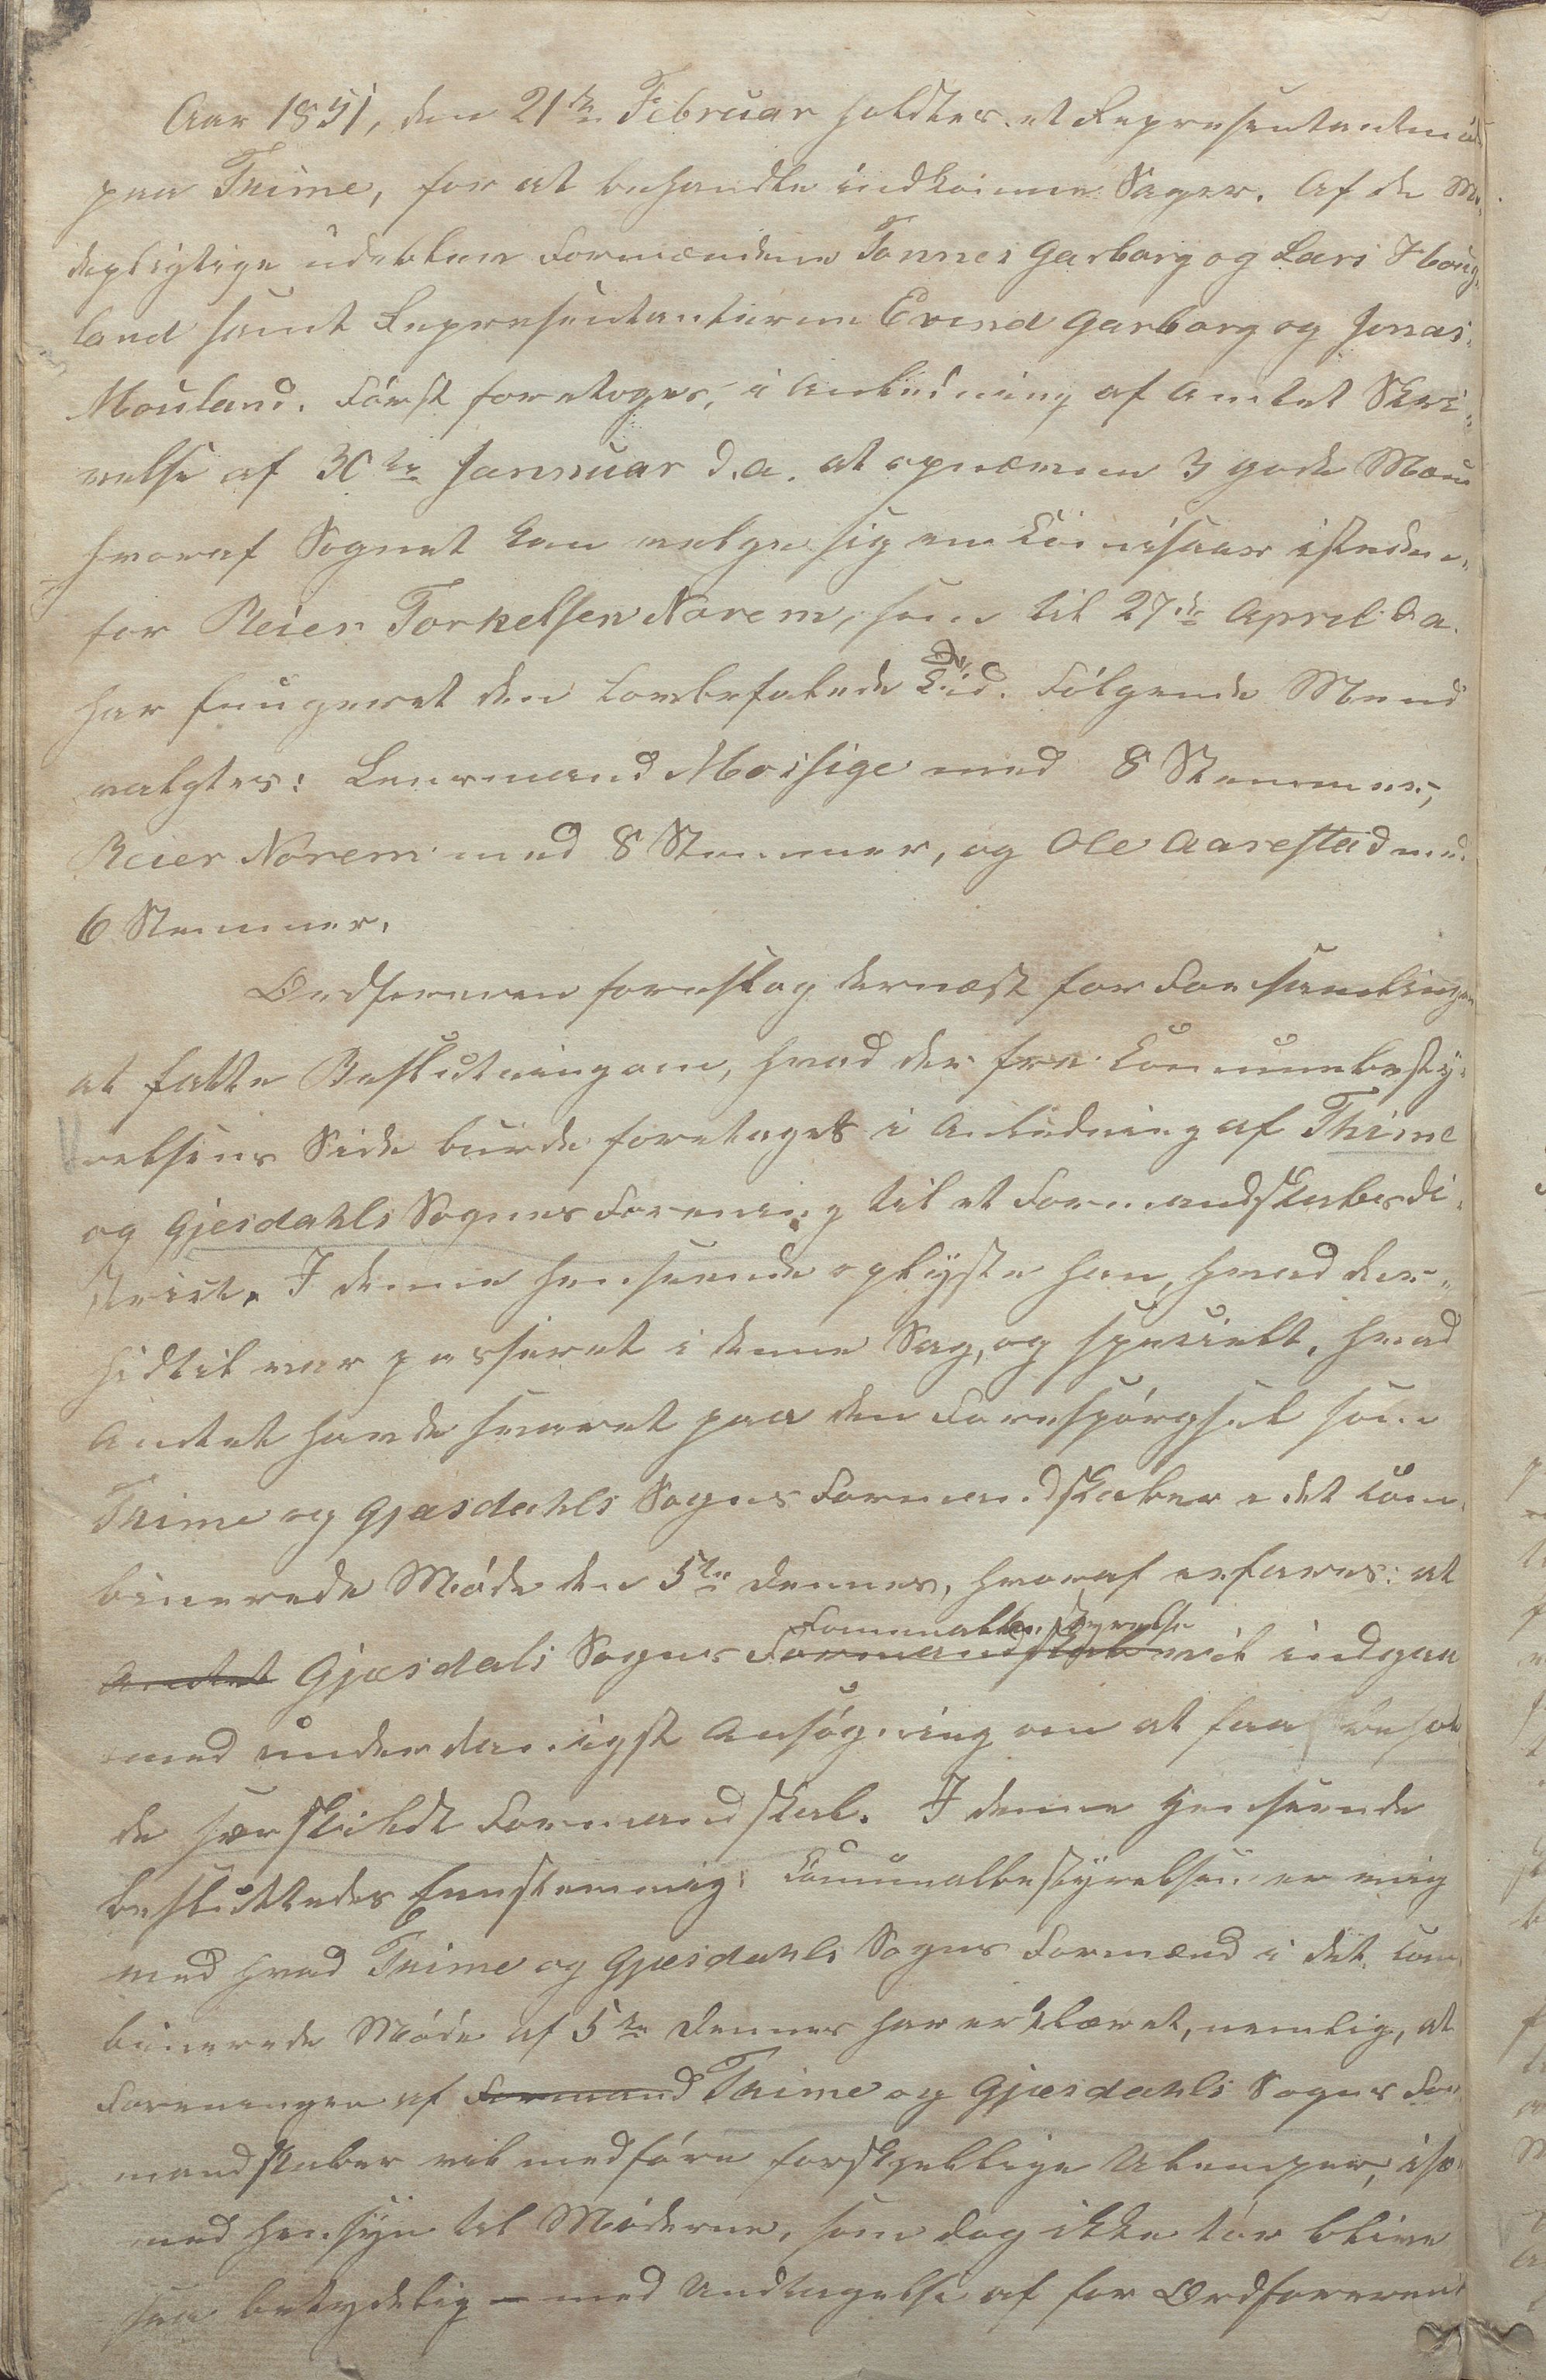 Aar 1851, den 21de Februar holdtes et Repræsentantmö-
paa Thime, for at behandle indkomne Sager. Af de Mö-
depligtige udebleve Formændene Tønnes Garborg og Lars Houg-
land samt Repræsentanterne Evend Garborg og Jonas
Mouland. Først foretoges, i Anledning af Amtets Skri-
velse af 30te Jannuar d.a. at opnævne 3 gode Mænd
hvoraf Sognet kan vælge sig en Comissær isteden-
for Reier Torkelsen Norem, som til 27de April d.a.
har fungeret den lovbefalede Tid. Følgende Mend
valgtes: Lensmand Mossige med 8 Stemmer,
Reier Norem med 8 Stemmer, og Ole Aarestad med
6 Stemmer.
Ordføreren foreslog dernæst for Forsamlingen
at fatte Beslutning om, hvad der fra Communebesty-
relsens Side burde foretages i Anledning af Thime
og Gjesdahls Sognes Forening til et Formandskabsdi-
strict. I denne Henseende oplyste han, hvad der
hidtil var passeret i denne Sag, og specielt, hvad
Amtet havde svaret paa den Forespørgsel som
Thime og Gjæsdahls Sognes Formandskaber i det com-
binerede Møde den 5te dennes, hvoraf erfares: at
Amtet Gjæsdals Sogns Formandskab Communalbestyrelse vil indgaa
med underdanigst Ansøgning om at faa behol-
de særskildt Formandskab. I denne Henseende
besluttedes Eenstemmig: Communalbestyrelsen er enig
med hvad Thime og Gjæsdahls Sognes Formænd i det com-
binerede Møde af 5te dennes har erklæret, nemlig, at
Foreningen af Formand Thime og Gjæsdahls Sognes For-
mandskaber vil medføre forskjellige Ulemper, især
med Hensyn til Møderne, som dog ikke tør blive
saa betydelig – med Undtagelse af for Ordføreren